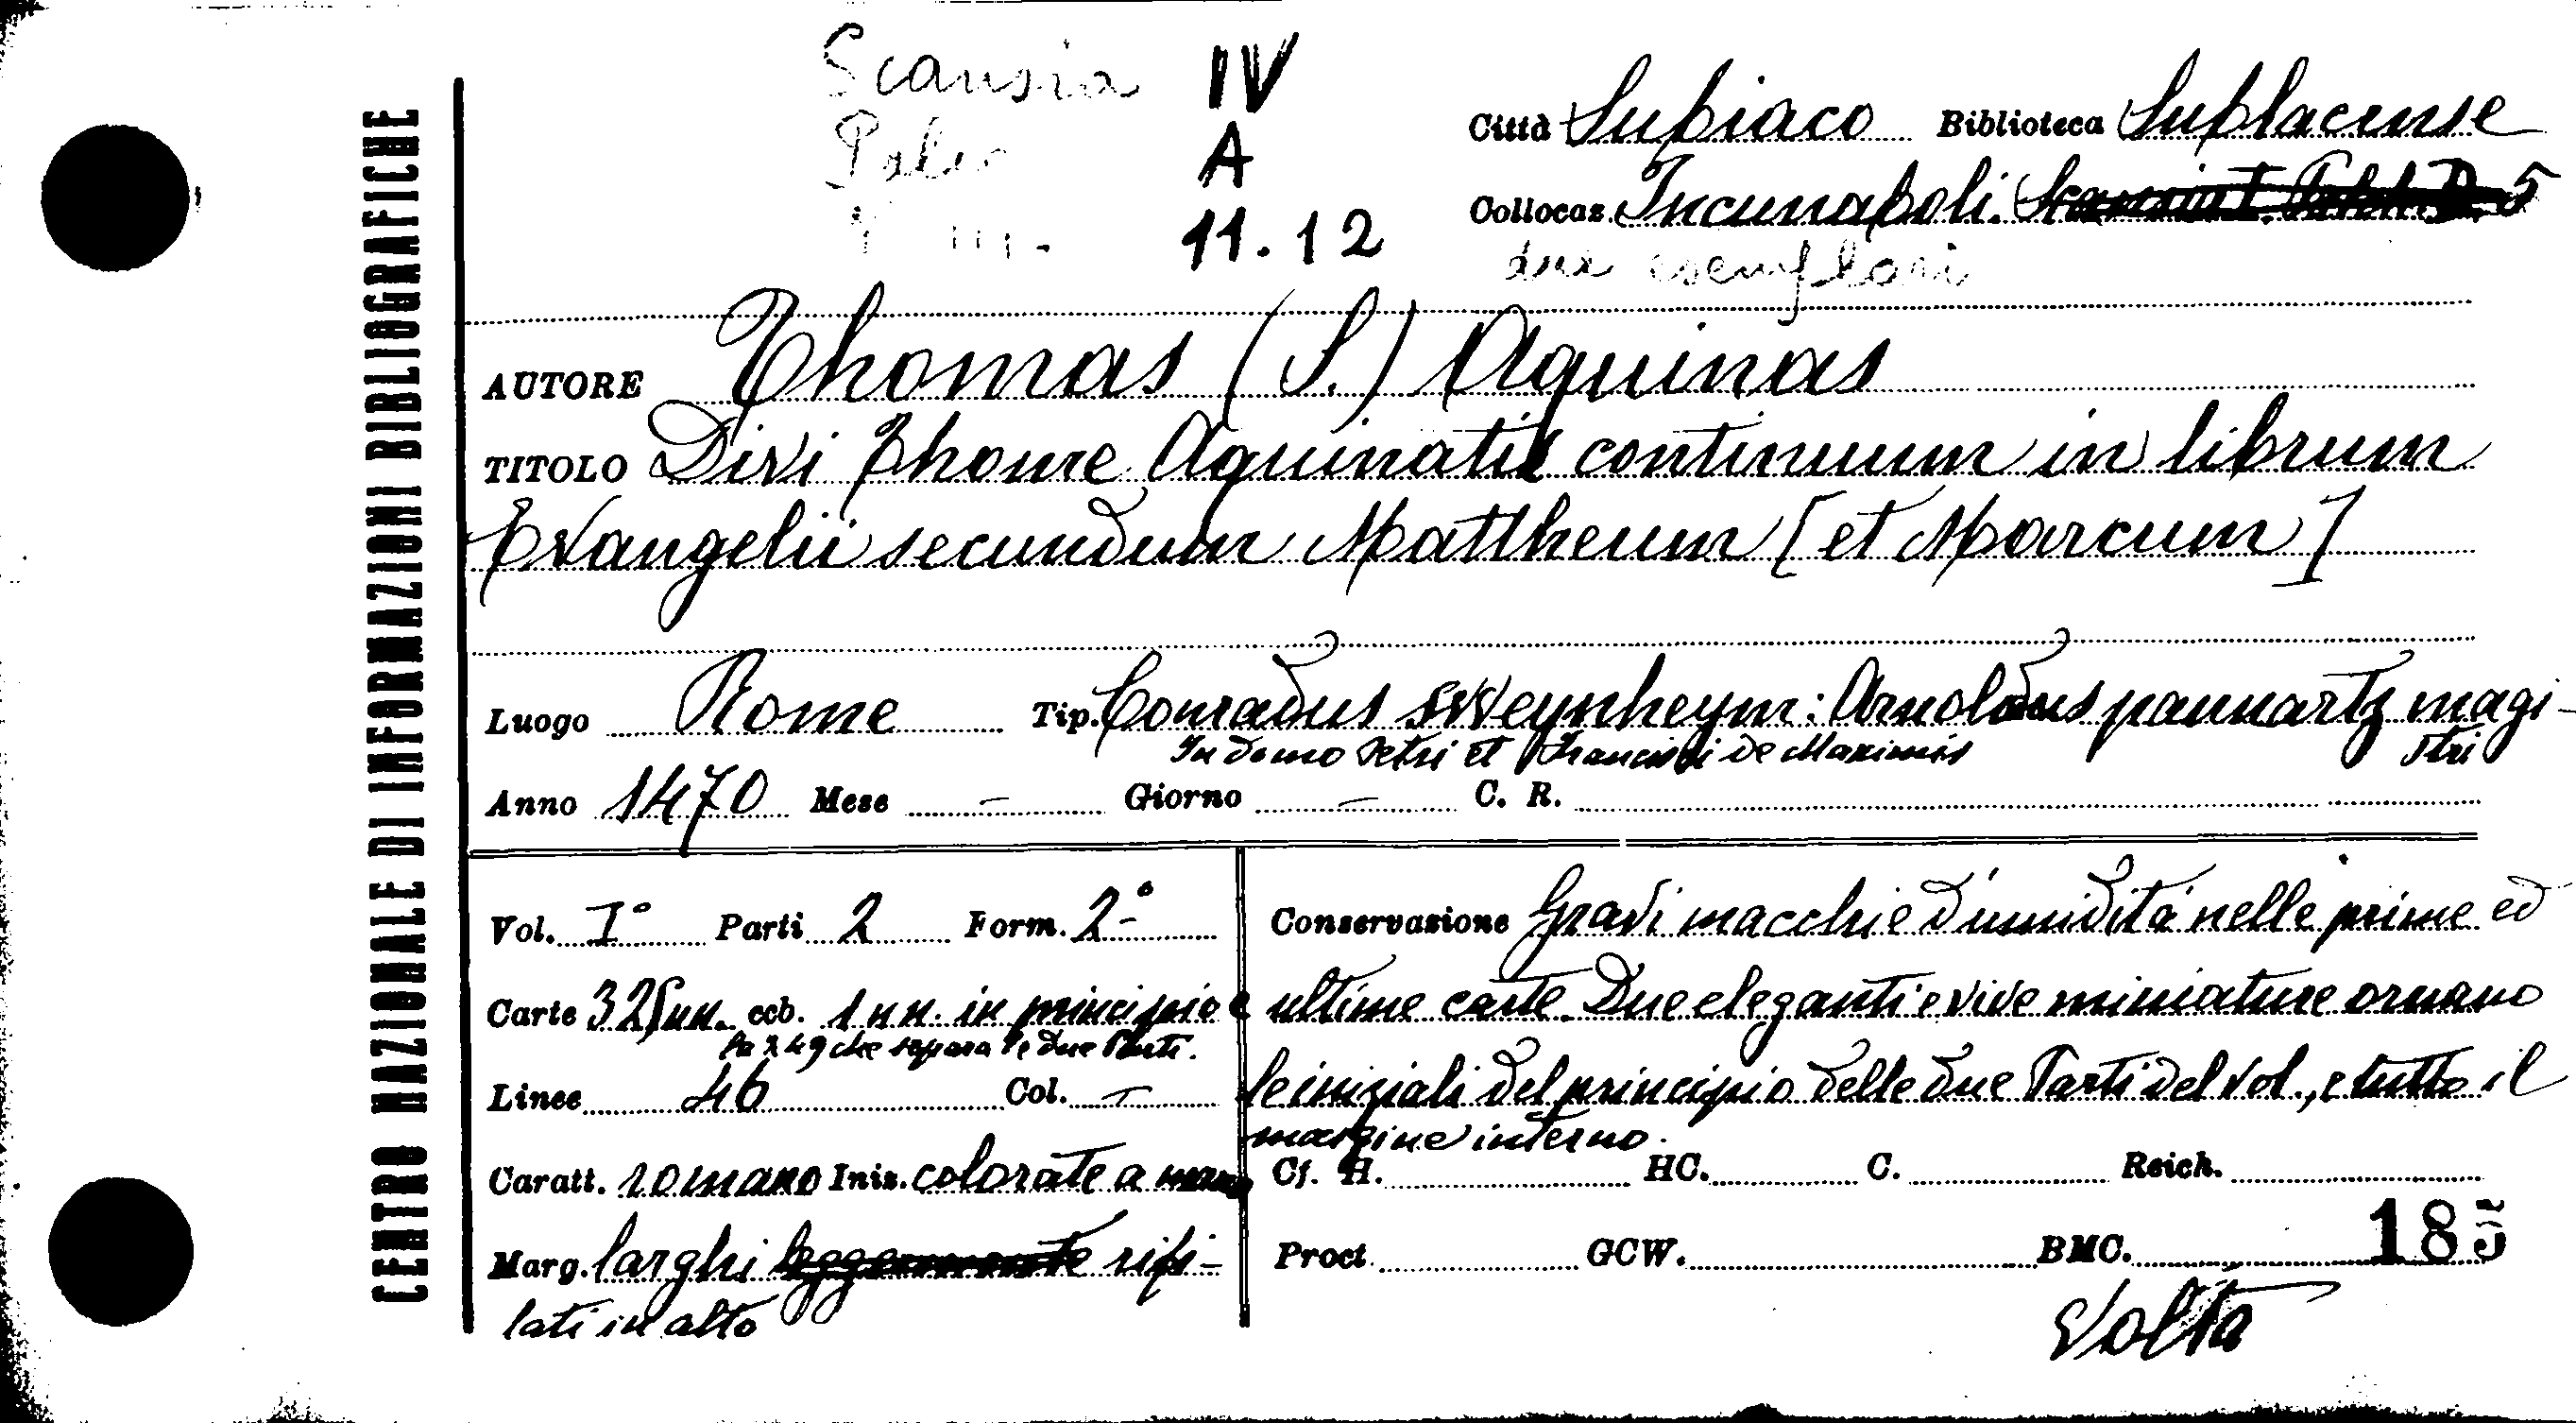 CENTRO NAZIONALE DI INFORMAZIONI BIBLIOGRAFICHE
Scansia IV
A
11.12
Città Subiaco Biblioteca Sublacense
Collocaz. Incunaboli. 5
due esemplari
AUTORE Thomas (S.) Aquinas
TITOLO Divi Thome Aquinatis continuum in librum
Evangelii secundum Mattheum [et Marcum]
Luogo Rome Tip. Conradus Sweynheym: Arnoldus pannartz magi-
In domo Petri et Francisci de Maximis stri
Anno 1470 Mese — Giorno — C. R.
Vol. I° Parti 2 Form. 2°
Carte 325nn. ccb. 1 nn. in principio e
la 249 che separa le due Parti.
Linee 46 Col. —
Caratt. romano Iniz. colorate a mano
Marg. larghi leggermente rifi-
lati in alto
Conservazione Gravi macchie d'umidità nelle prime ed
ultime carte. Due eleganti e vive miniature ornano
le iniziali del principio delle due Parti del vol., e tutto il
margine interno.
Cf. H. HC. C. Reich.
Proct. GCW. BMC. 185
Volta